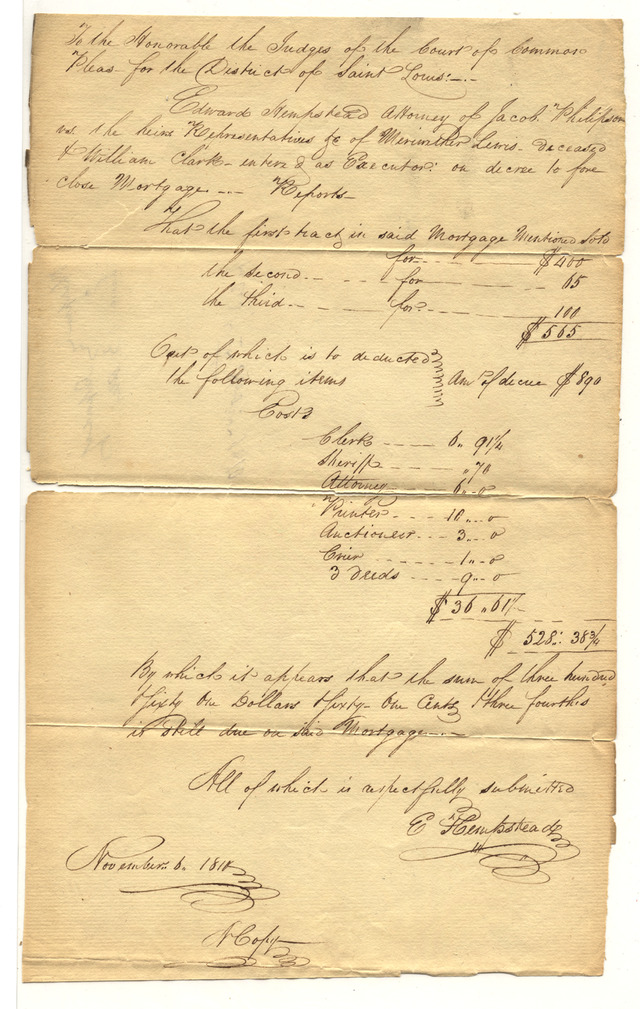 To the Honorable the Judges of the Court of Common
Pleas for the District of Saint Louis.—
Edward Hempstead Attorney of Jacob Philipson
vs. the heirs Representatives &c of Meriwether Lewis deceased
& William Clark entered as Executor: on decree to fore
close Mortgage... Reports—
That the first tract in said Mortgage Mentioned Sold
for - - - - $400
the second - - - - for - - - - 65
the third - - - - for - - - - 100
$ 565
Out of which is to deducted
the following items Amt. of decree $890
Costs
Clerk - - - - 6,, 91¼
Sheriff - - - - ,, 70
Attorney - - - 6,,-0
Printer - - - 10,,-0
Auctioneer - - - 3,,-0
Crier - - - 1,,-0
3 Deeds - - - 9-0
$ 36 ,, 61¼
$ 528: 38¾
By which it appears that the sum of three hundred
& sixty One Dollars & sixty One Cents & three fourths
is Still due on said Mortgage—
All of which is respectfully submitted
E Hempstead
November 6. 1810
A Copy